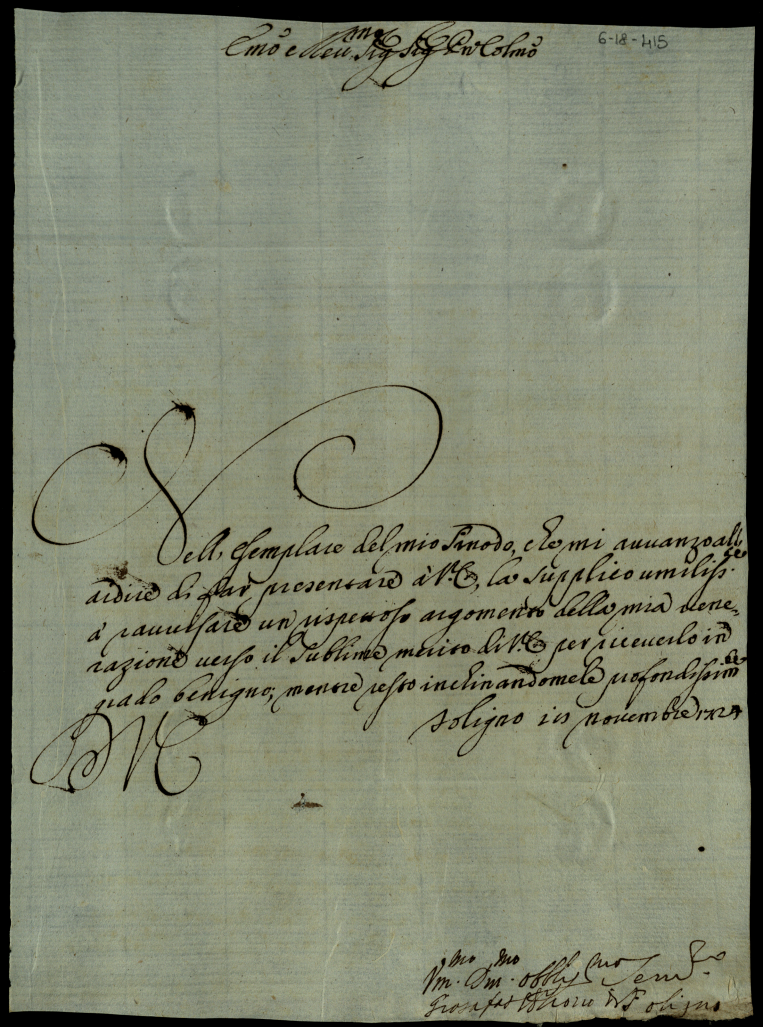 Emo e Reu.mo Sig Sig Pron Colmo
6-18-415
Nell' esemplare del mio Sinodo, che mi auuanzo all'
ardire di far presentare à V.E., la supplico umiliss.te
à rauuisare un rispettoso argomento della mia vene-
razione uerso il sublime merito di V.E. per riceuerlo in
grado benigno; mentre resto inchinandomele profondissim.te
Foligno novembre
D V E
Vm.mo Dm.mo obbl.mo Seru.re
Foligno